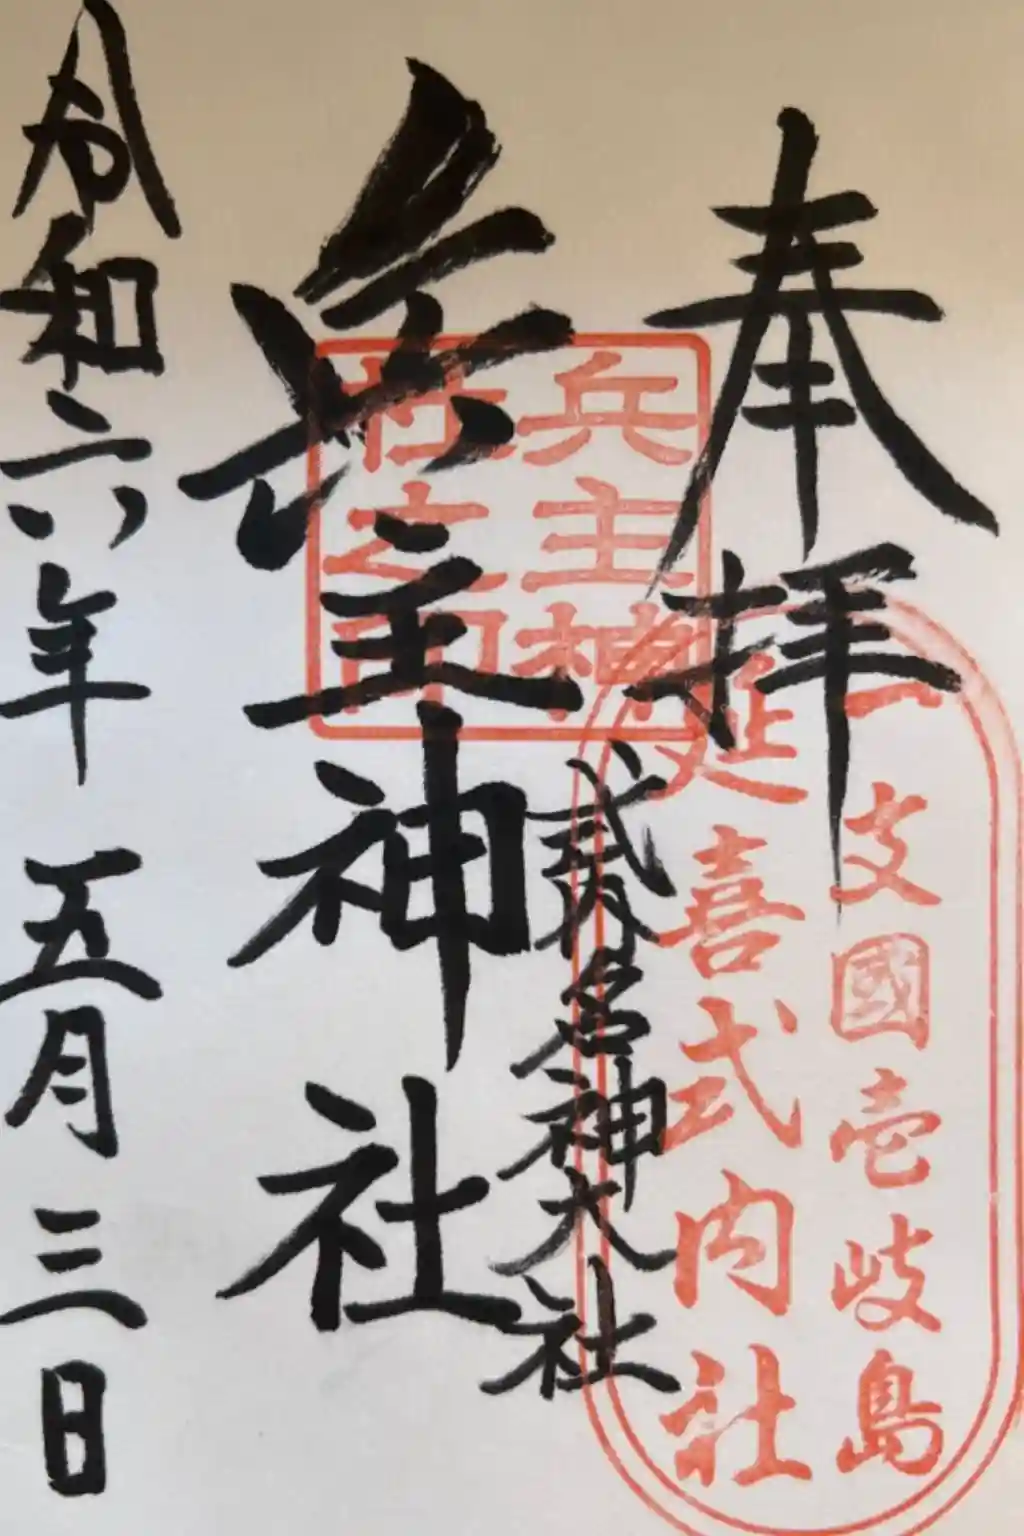 奉拝
一支國壱岐島
延喜式内社
兵主神社之印
弐内名神大社
兵主神社
令和六年 五月 三日